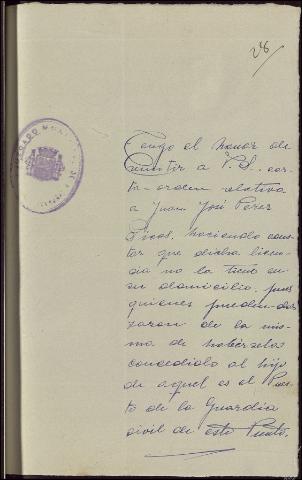 28
JUZGADO MUNICIPAL
Tengo el honor de
remitir a V.S. car-
ta-orden relativa
a Juan José Perez
Picos, haciendo cons-
tar que dicha licen-
cia no la tiene en
su domicilio, pues
quienes pueden
de la mis-
ma de habérselas
concedido al hijo
de aquel es el Pues-
to de la Guardia
civil de este Punto.